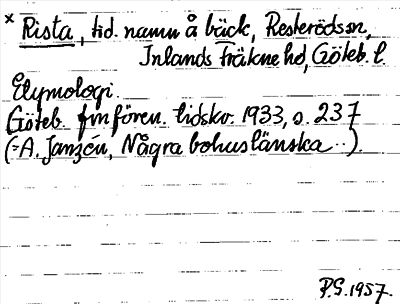 × Rista, tid. namn å bäck, Resterödssn,
Inlands Fräkne hd, Göteb. l.
Etymologi.
Göteb. fmfören. tidskr. 1933, s. 237
(= A. Janzén, Några bohuslänska ...).
P.G. 1957.